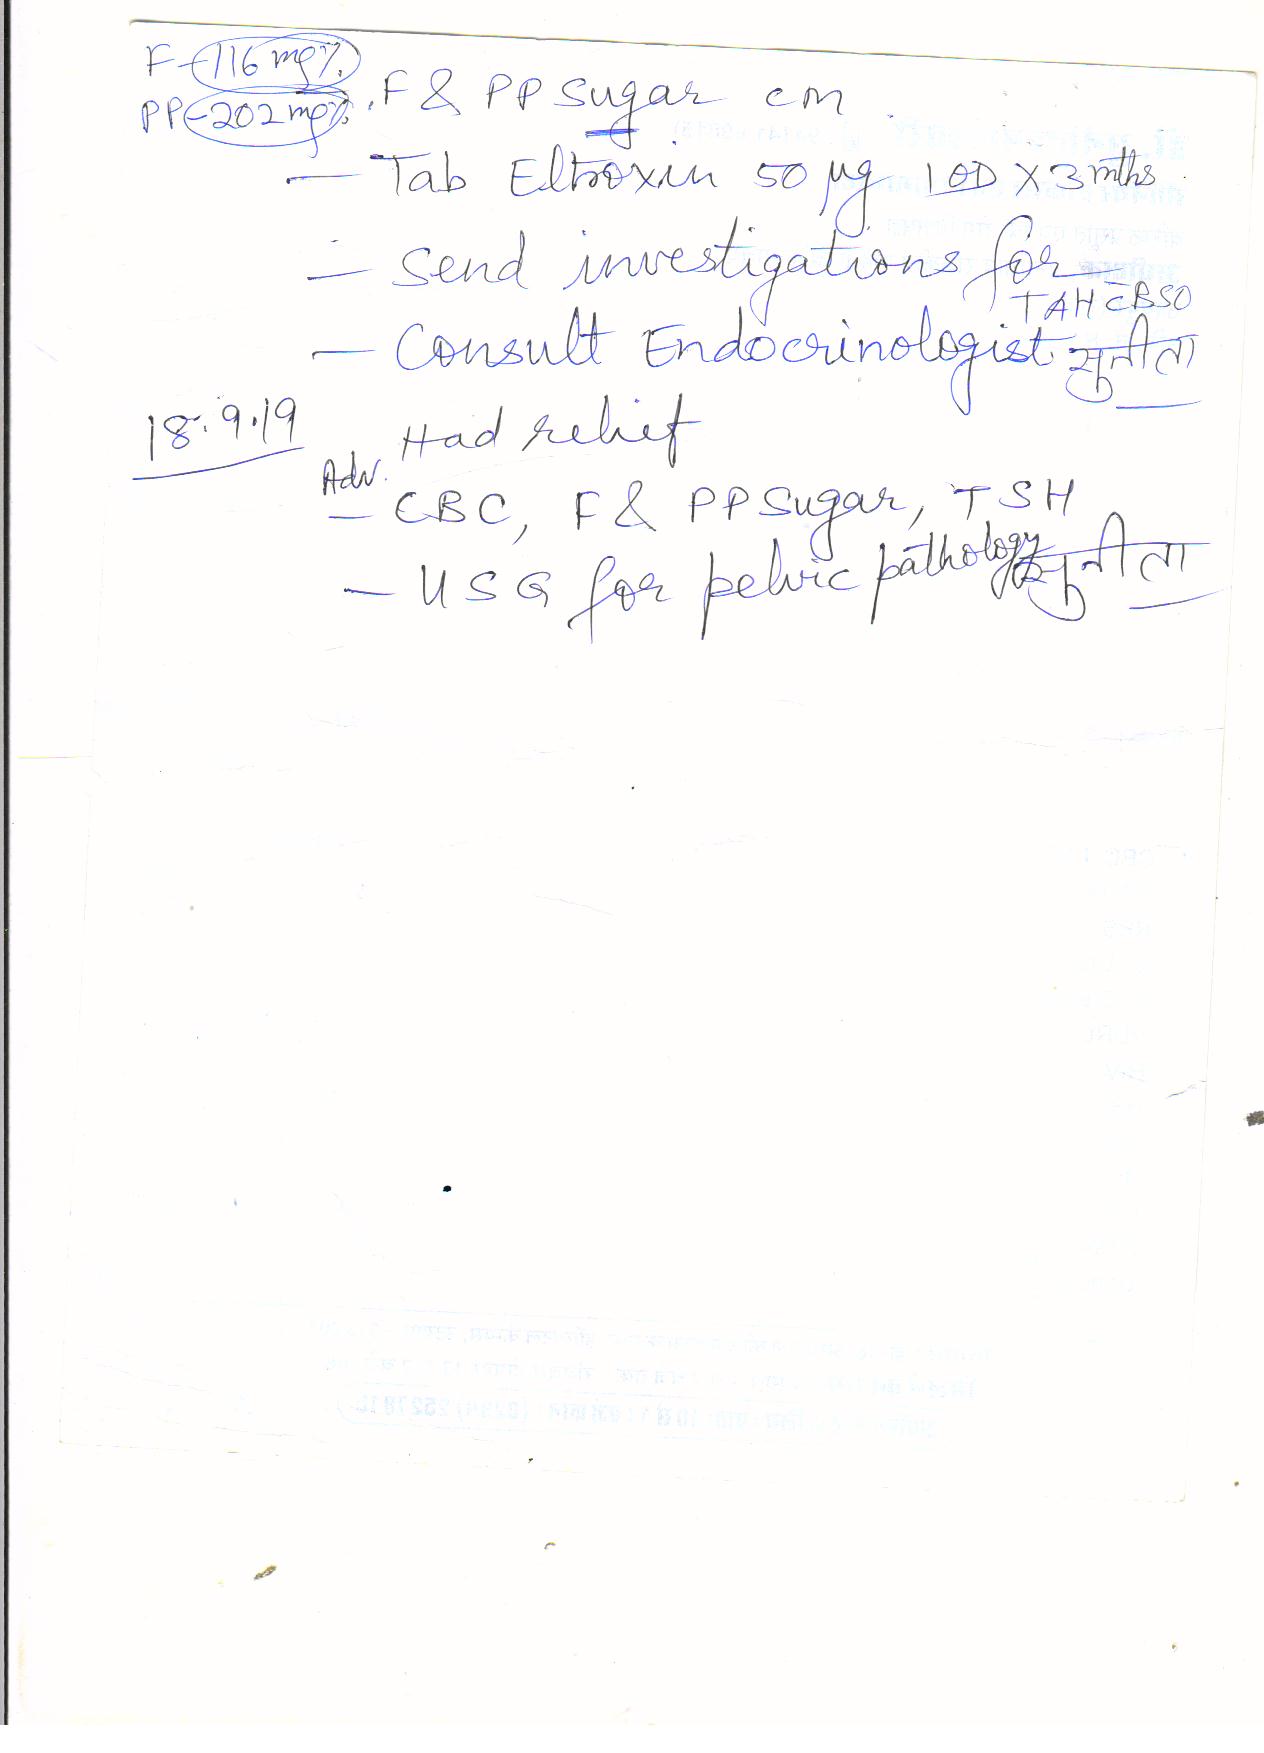 F - 116 mg%
PP - 202 mg% . F & PP Sugar cm
- Tab Eltroxin 50 µg 1OD X 3 mths
- Send investigations for TAH c̄ BSO
- Consult Endocrinologist सुनीता
18.9.19 Had relief
Adv.
- CBC, F & PP Sugar, TSH
- USG for pelvic pathology सुनीता